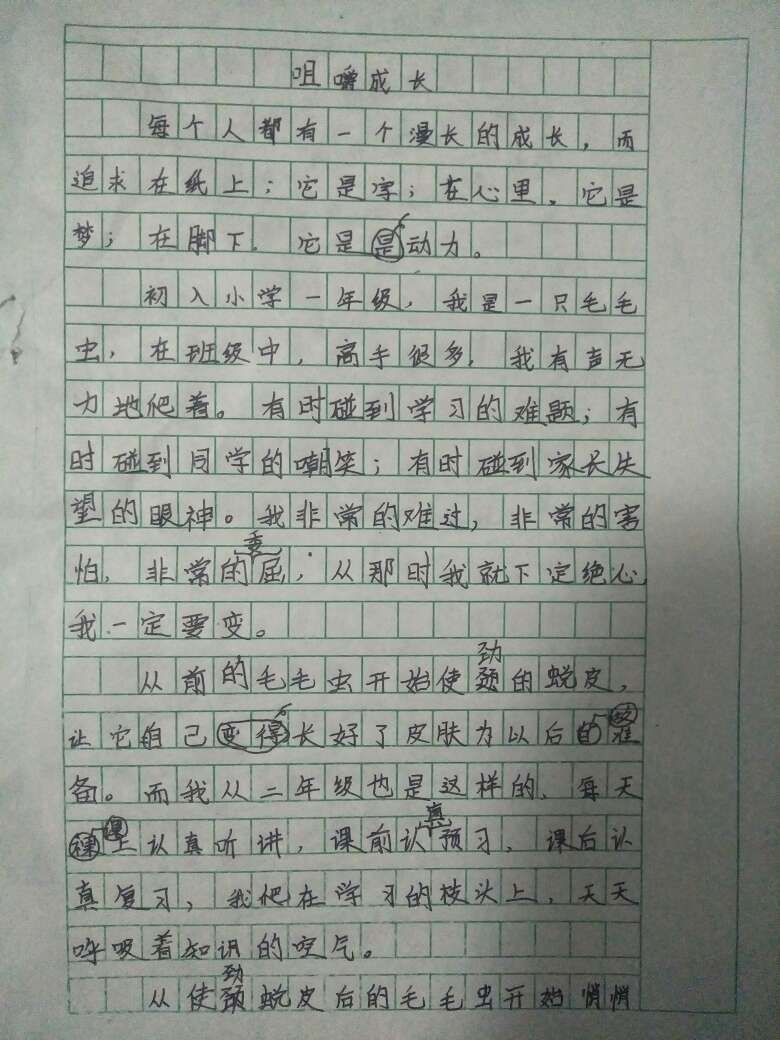 咀嚼成长
每个人都有一个漫长的成长，而
追求在纸上；它是字；在心里，它是
梦；在脚下，它是是动力。
初入小学一年级，我是一只毛毛
虫，在班级中，高手很多，我有声无
力地爬着。有时碰到学习的难题；有
时碰到同学的嘲笑；有时碰到家长失
望的眼神。我非常的难过，非常的害
怕，非常的委屈，从那时我就下定绝心
我一定要变。
从前的毛毛虫开始使劲的蜕皮，
让它自己变得长好了皮肤为以后的准
备。而我从二年级也是这样的，每天
课上认真听讲，课前认真预习，课后认
真复习，我爬在学习的枝头上，天天
呼吸着知识的空气。
从使劲蜕皮后的毛毛虫开始悄悄